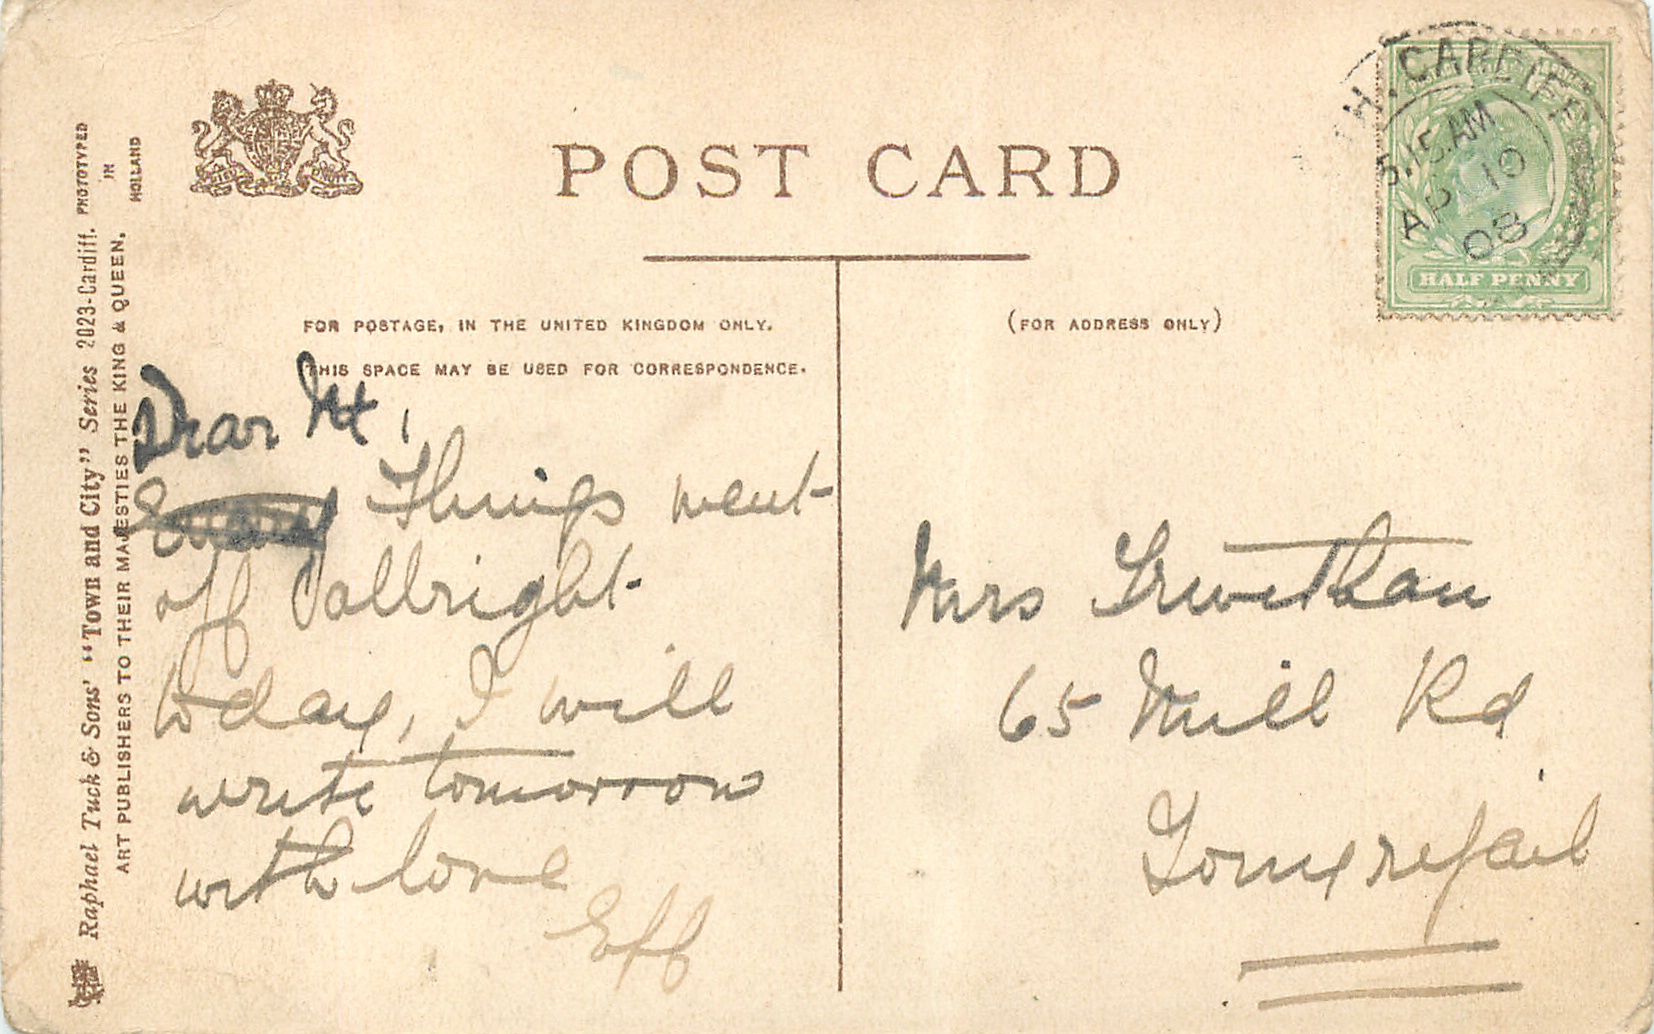 POST CARD
FOR POSTAGE, IN THE UNITED KINGDOM ONLY,
THIS SPACE MAY BE USED FOR CORRESPONDENCE.
(FOR ADDRESS ONLY)
Raphael Tuck & Sons' "Town and City" Series 2023-Cardiff.
PHOTOTYPED
IN
HOLLAND
ART PUBLISHERS TO THEIR MAJESTIES THE KING & QUEEN.
Dear
Things went
off allright
today, I will
write tomorrow
with love
Eff
Mrs
65 Mill Rd
Tonyrefail
CARDIFF
5.15 AM
AP 10
08
HALF PENNY